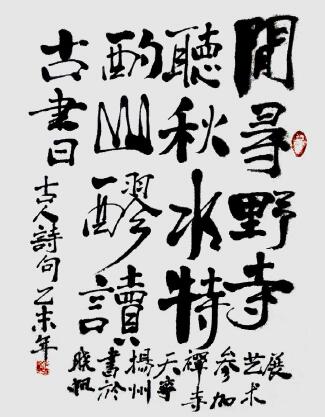 閒尋野寺
聽秋水特
酌山醪讀
古書
古人詩句乙未年
書於
揚州
天寧
禪寺
参加
艺术
展